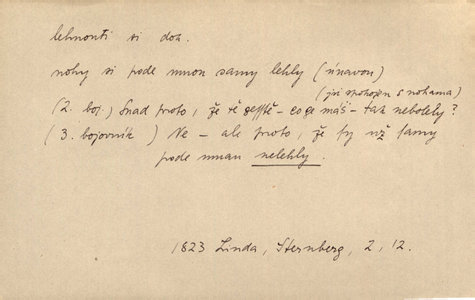 lehnouti si dok.
nohy si pode mnou samy lehly (únavou)
(jsi spokojen s nohama)
(2. boj.) Snad proto, že tě ještě – co je máš – tak nebolely?
(3. bojovník) Ne – ale proto, že by už samy
pode mnou nelehly.
1823 Linda, Sternberg, 2, 12.